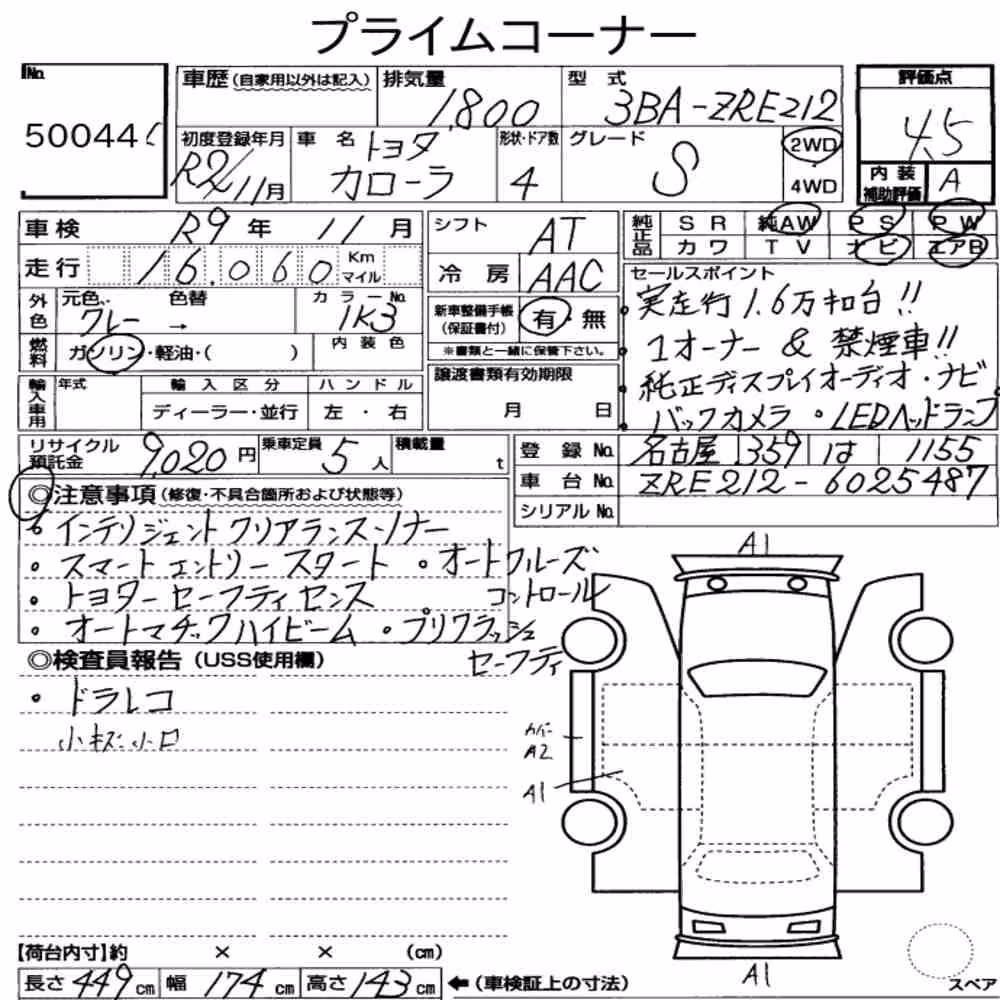 プライムコーナー
No.
50044
車歴 (自家用以外は記入)
排気量
1,800
型 式
3BA-ZRE212
評価点
4.5
初度登録年月
R2/11月
車 名
トヨタ
カローラ
形状・ドア数
4
グレード
S
2WD
4WD
内 装
補助評価
A
車検 R9 年 11 月
走行 16.060 Km
マイル
外色
元色、 色替
グレー →
カラーNo.
1K3
燃料
ガソリン・軽油・( )
内 装 色
輸入車用
年式
輸 入 区 分
ディーラー・並行
ハ ン ド ル
左 ・ 右
シフト
AT
冷 房
AAC
新車整備手帳
(保証書付)
有・無
※書類と一緒に保管下さい。
譲渡書類有効期限
月 日
純正品
S R 純AW P S P W
カ ワ T V ナ ビ エアB
セールスポイント
・実走行1.6万キロ台!!
・1オーナー & 禁煙車!!
・純正ディスプレイオーディオ・ナビ
・バックカメラ ・LEDヘッドランプ
リサイクル
預託金
9,020 円
乗車定員 5 人
積載量 t
登 録 No. 名古屋 359 は 1155
車 台 No. ZRE212-6025487
シリアル No.
◎注意事項(修復・不具合箇所および状態等)
・インテリジェントクリアランスソナー
・スマートエントリースタート ・オートクルーズ
コントロール
・トヨターセーフティセンス
・オートマチックハイビーム ・プリクラッシュ
セーフティ
◎検査員報告 (USS使用欄)
・ドラレコ
小キズ 小凹
A1
カバー
A2
A1
A1
スペア
【荷台内寸】約 × × (cm)
長さ 449 cm 幅 174 cm 高さ 143 cm ←(車検証上の寸法)